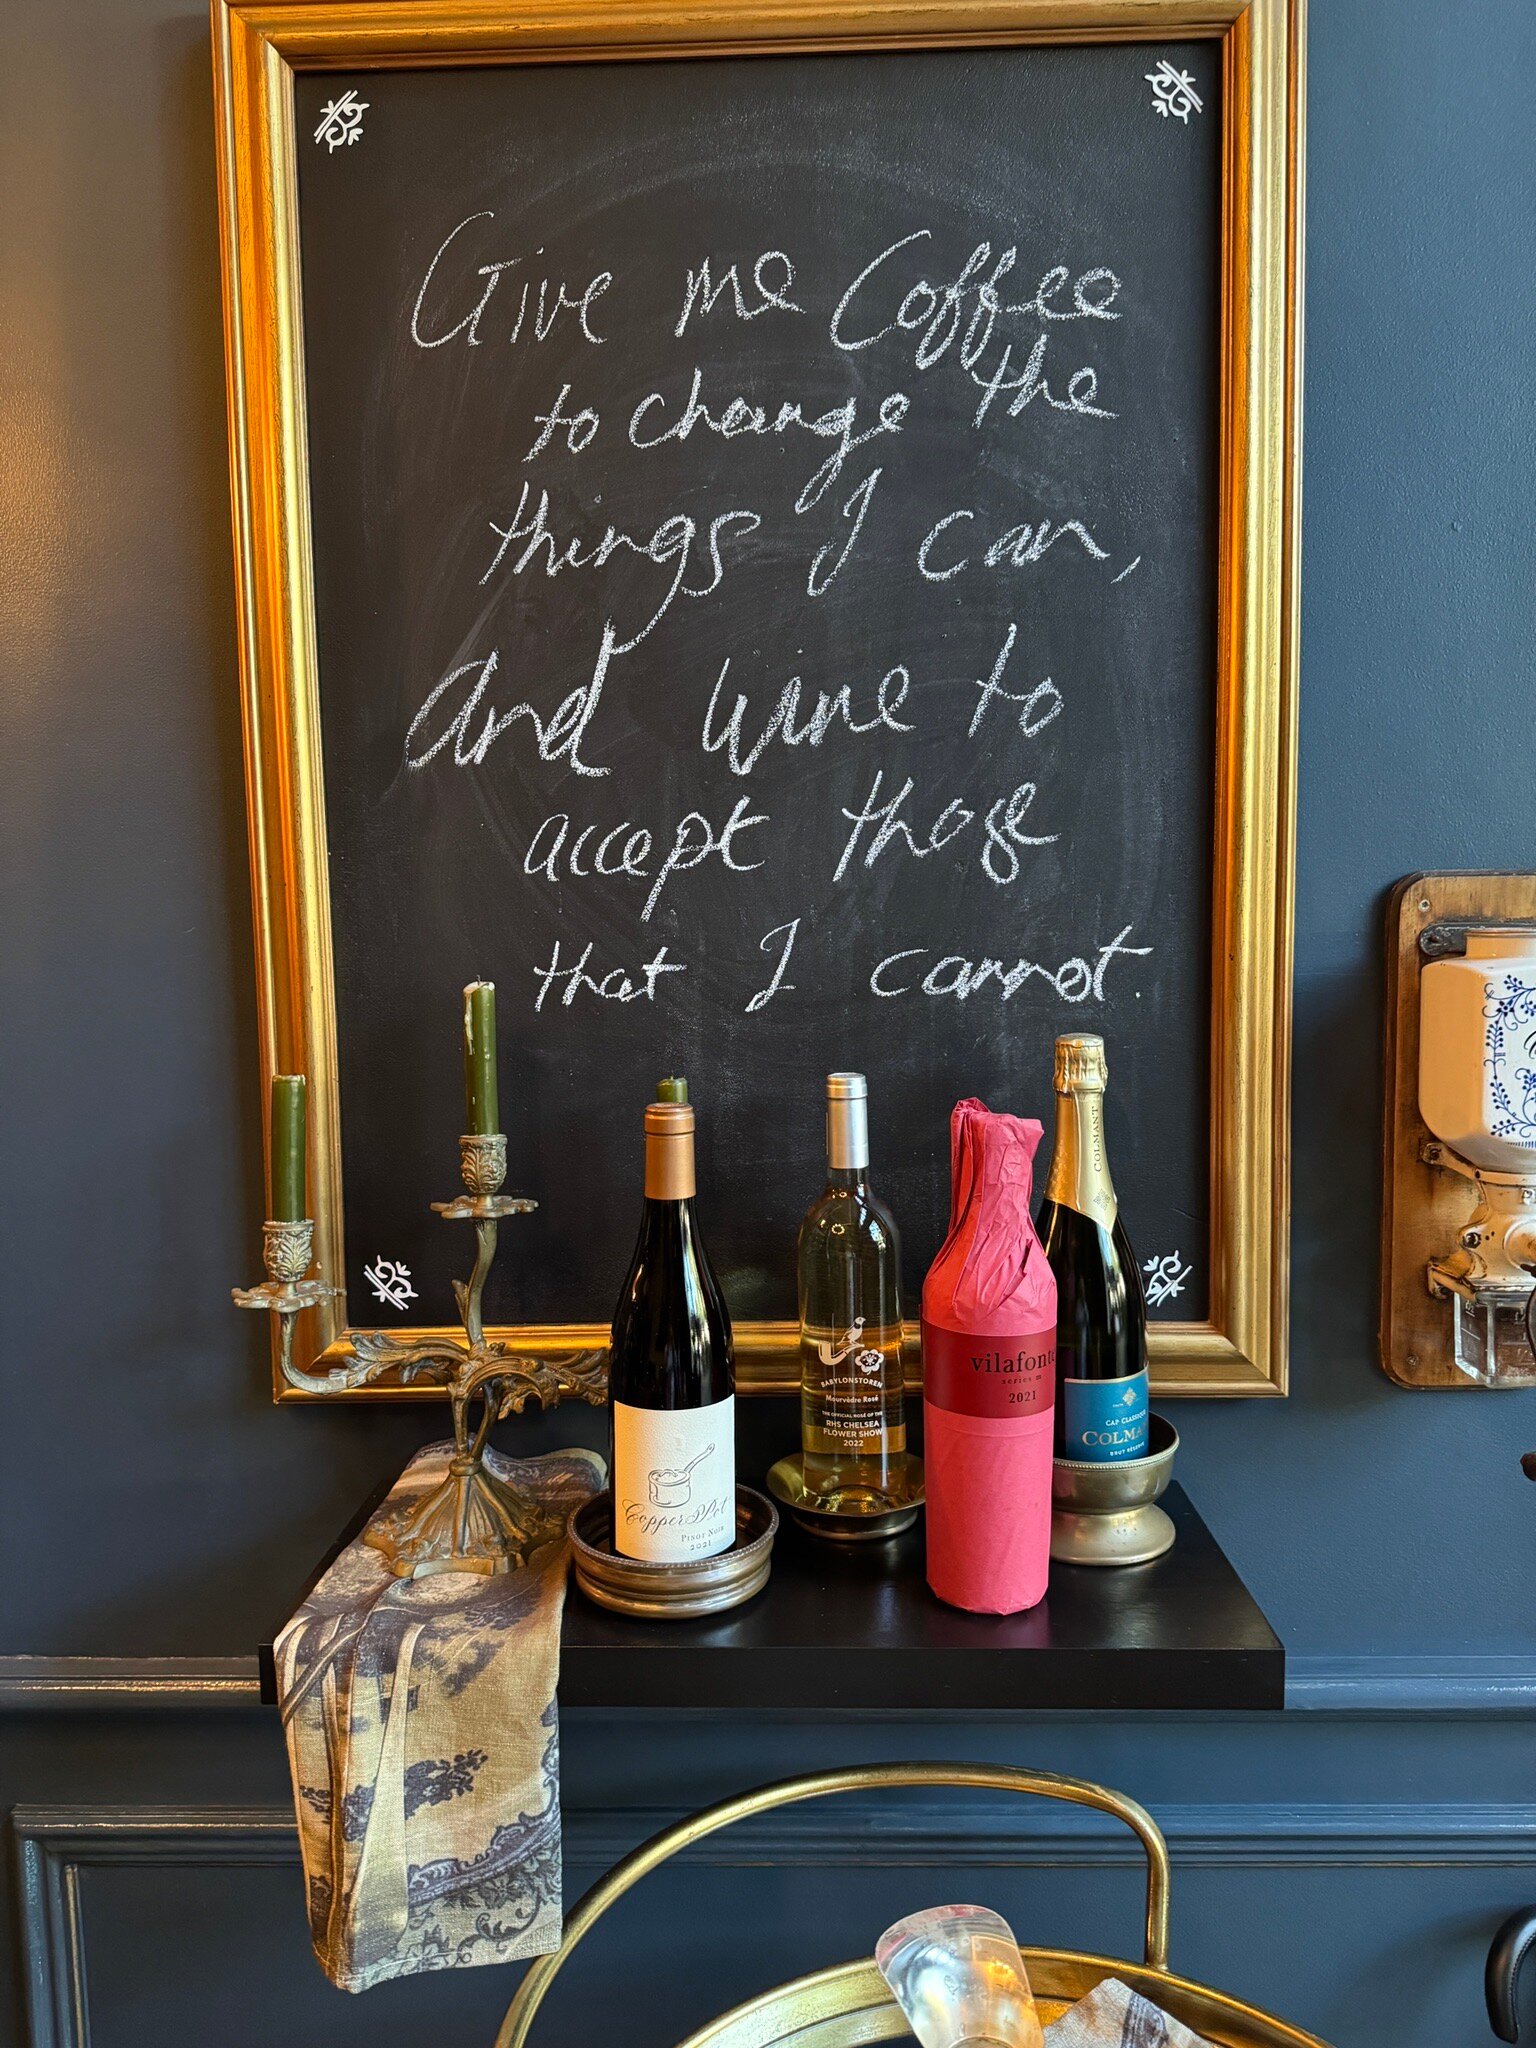 Give me Coffee
to change the
things I can,
And wine to
accept those
that I cannot.
Copper Pot
PINOT NOIR
2021
BABYLONSTOREN
Mourvèdre Rosé
THE OFFICIAL ROSÉ OF THE
RHS CHELSEA
FLOWER SHOW
2022
vilafonte
series m
2021
COLMANT
CAP CLASSIQUE
COLMA
BRUT RÉSERVE